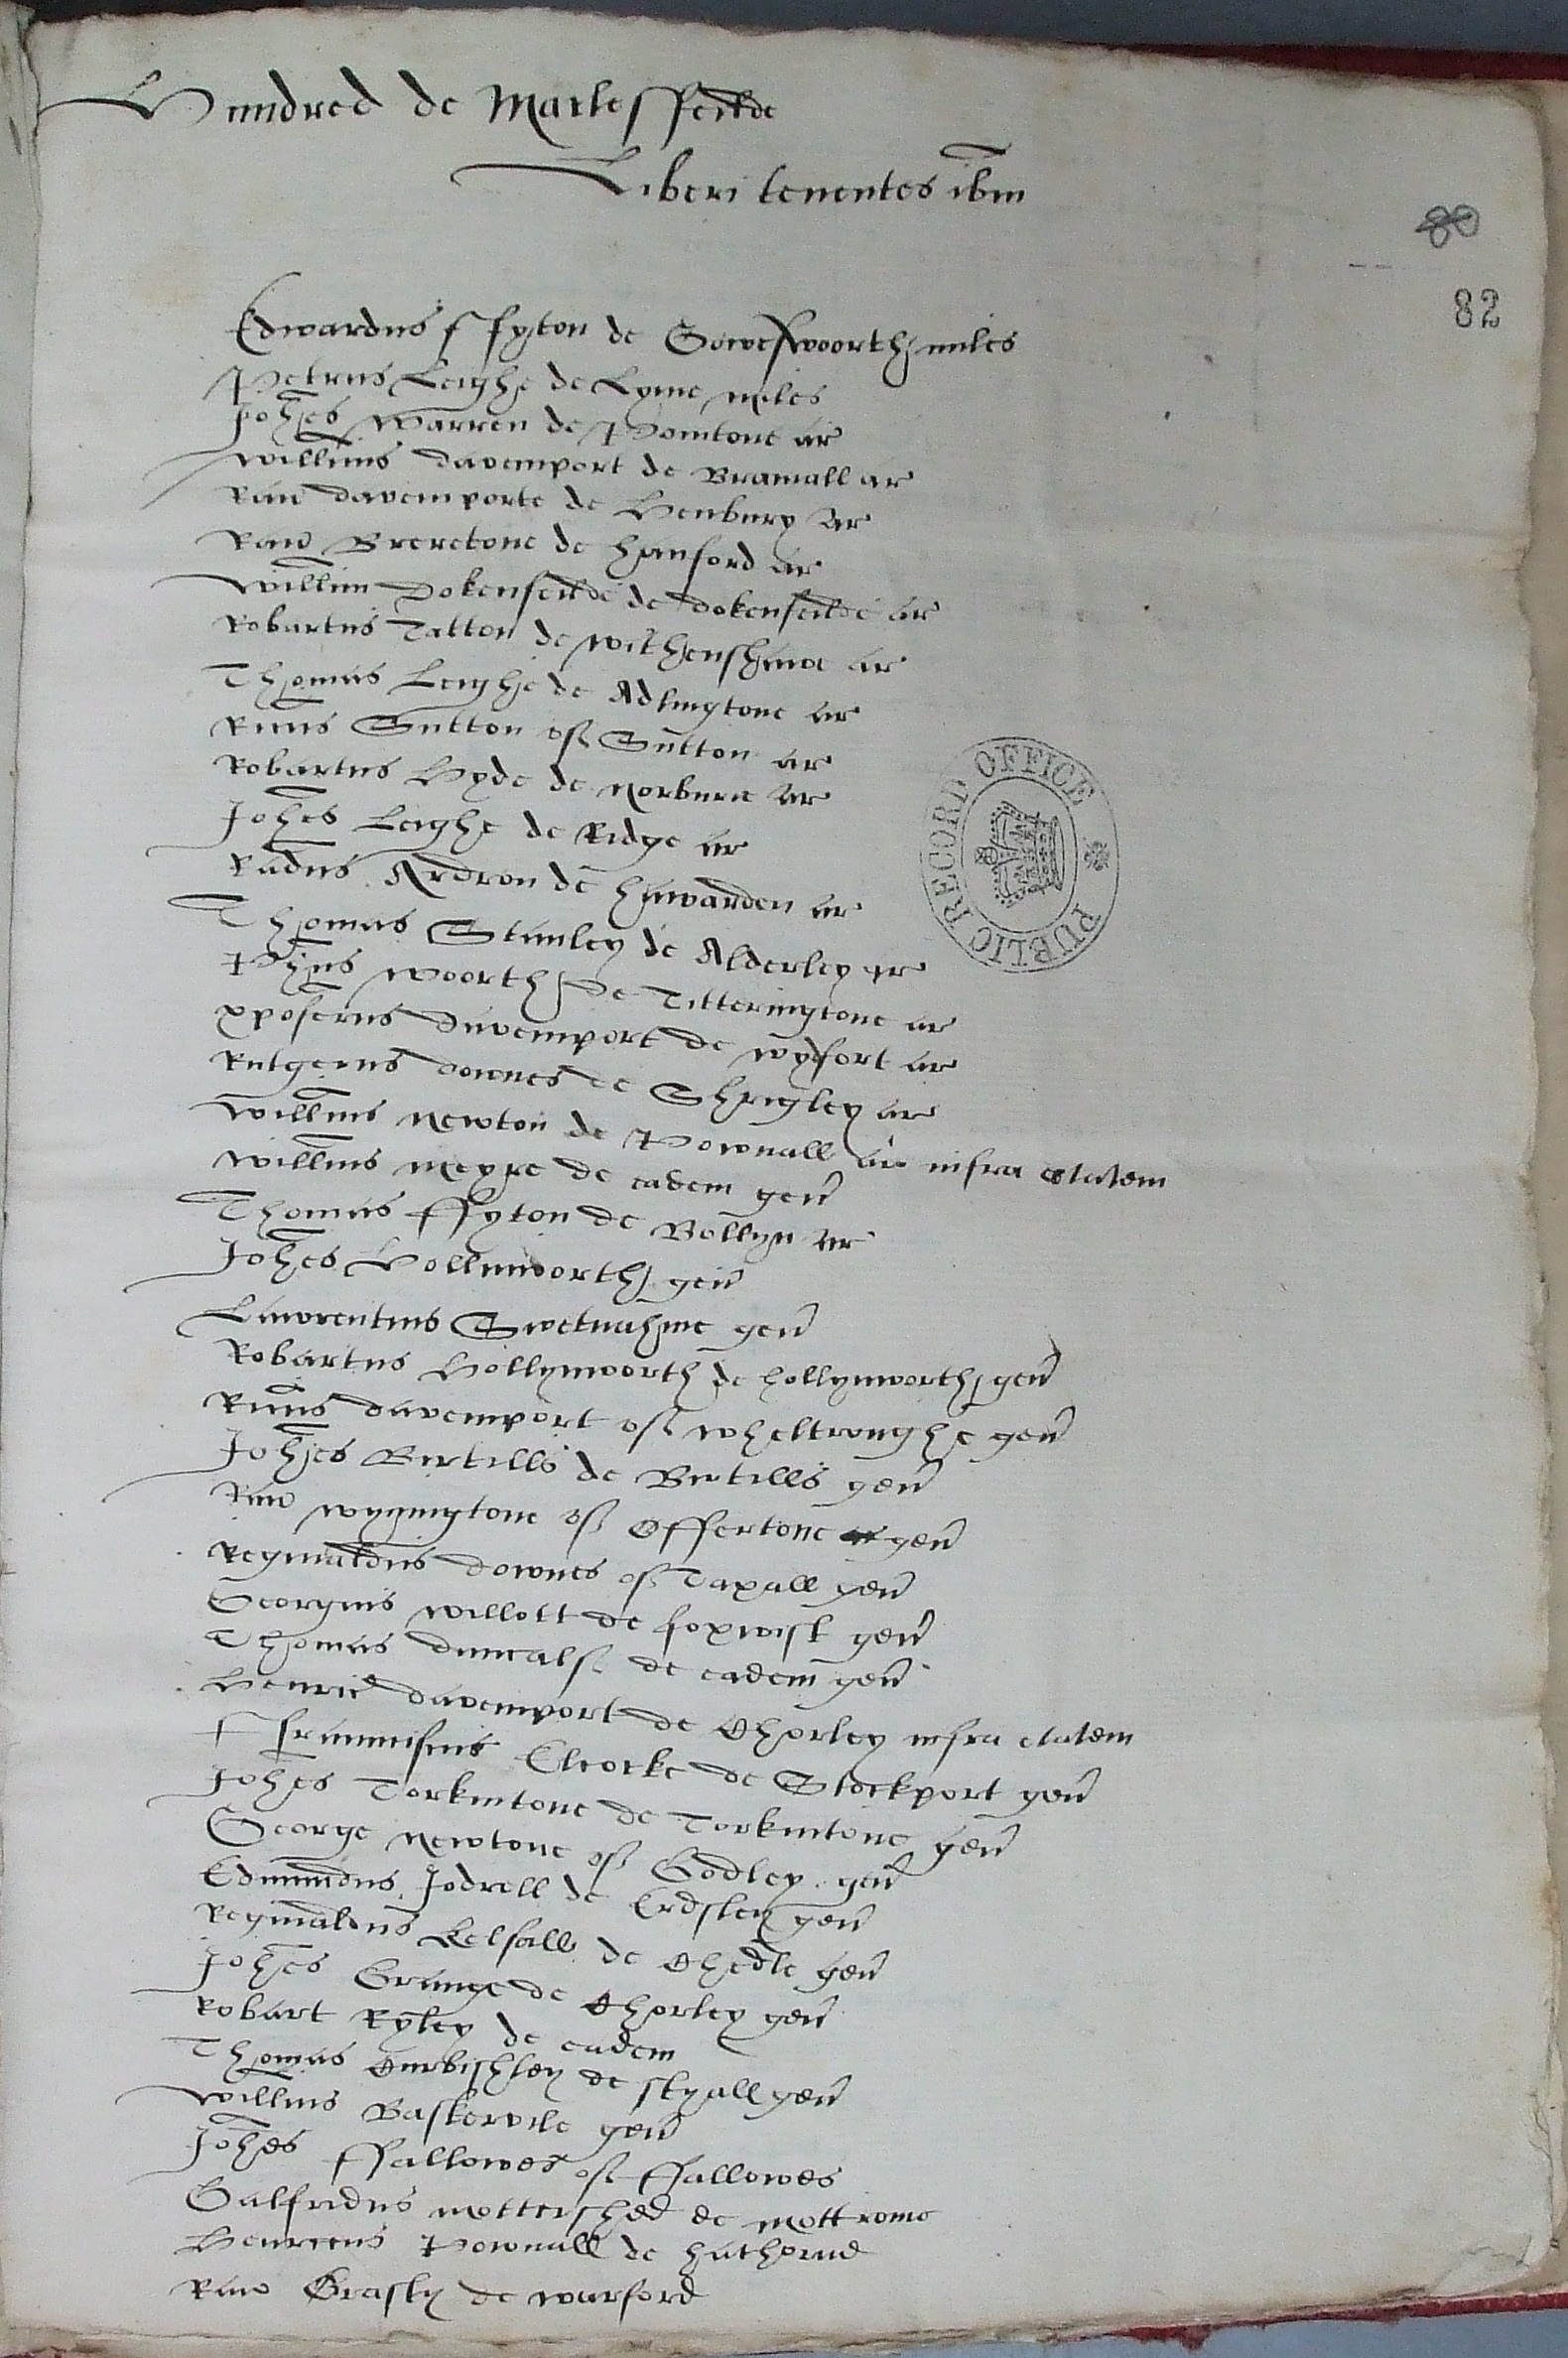 Hundred de Macclesffeilde
Liberi tenentes ibm
80
82
Edwardus ffyton de Gowesworth miles
Petrus Leighe de Lyme miles
Johes Warren de Pointone ar
Willmus davemport de Bramall ar
Ran davemporte de Henbury ar
Raw Breretone de hanford ar
Willim Dokenfeilde de dokenfeilde ar
Robartus Tatton de Withenshawe ar
Thomas Leighe de Adlingtone ar
Ricus Sutton of Sutton ar
Robartus Hyde de Norburie ar
Johes Leighe de Ridge ar
Radus Ardron de hawarden ar
Thomas Stanley de Alderley ar
Phus Woorth de Titteringtone ar
xpoferus davemport de ar
Rutgerus downes de Shrigley ar
Willmus Newton de Pownall ar infra etatem
Willmus Meyre de eadem gen
Thomas ffyton de Bollyn ar
Johes Hollinwoorth gen
Lawrentius Swetnahme gen
Robartus Hollynwoorth de hollynworth gen
Ricus davemport of Wheltroughe gen
Johes Birtills de Birtills gen
Raw Wynnigtone of Offertone gen
Reginaldus downes of Taxall gen
Georgius Willott de foxwist gen
Thomas duncalf de eadem gen
Henric davemport de Chorley infra etatem
ffrauncisus Elcocke de Stockport gen
Johes Torkintone de Torkintone gen
George Newtone of Godley gen
Edmundus Jodrell de Erdsley gen
Reginaldus Kelsall de Chedle gen
Johes Grange de Chorley gen
Robart Ryley de eadem
Thomas Curbishley de styall gen
Willmus Baskervile gen
Johes ffallowes of ffallowes
Galfridus Mottershed de Mottrome
Henricus Pownall de
Raw Grasty de warford
PUBLIC RECORD OFFICE